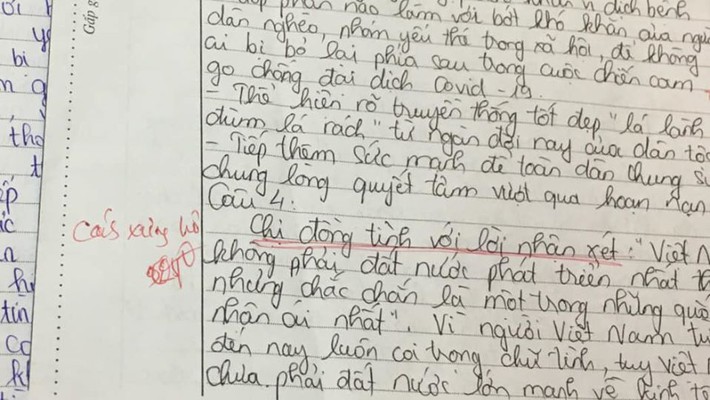 phần nào làm vơi bớt khó khăn của ngư
dân nghèo, nhóm yếu thế trong xã hội, để không
ai bị bỏ lại phía sau trong cuộc chiến cam
go chống đại dịch Covid-19.
- Thể hiện rõ truyền thống tốt đẹp "lá lành
đùm lá rách" từ ngàn đời nay của dân tộ
- Tiếp thêm sức mạnh để toàn dân chung s
chung lòng quyết tâm vượt qua hoạn nạn
Câu 4:
Cách xưng hô
Chị đồng tình với lời nhận xét: "Việt N
không phải đất nước phát triển nhất
nhưng chắc chắn là một trong những quố
nhân ái nhất". Vì người Việt Nam từ
đến nay luôn coi trọng chữ tình, tuy Việt
chưa phải đất nước lớn mạnh về kinh tế